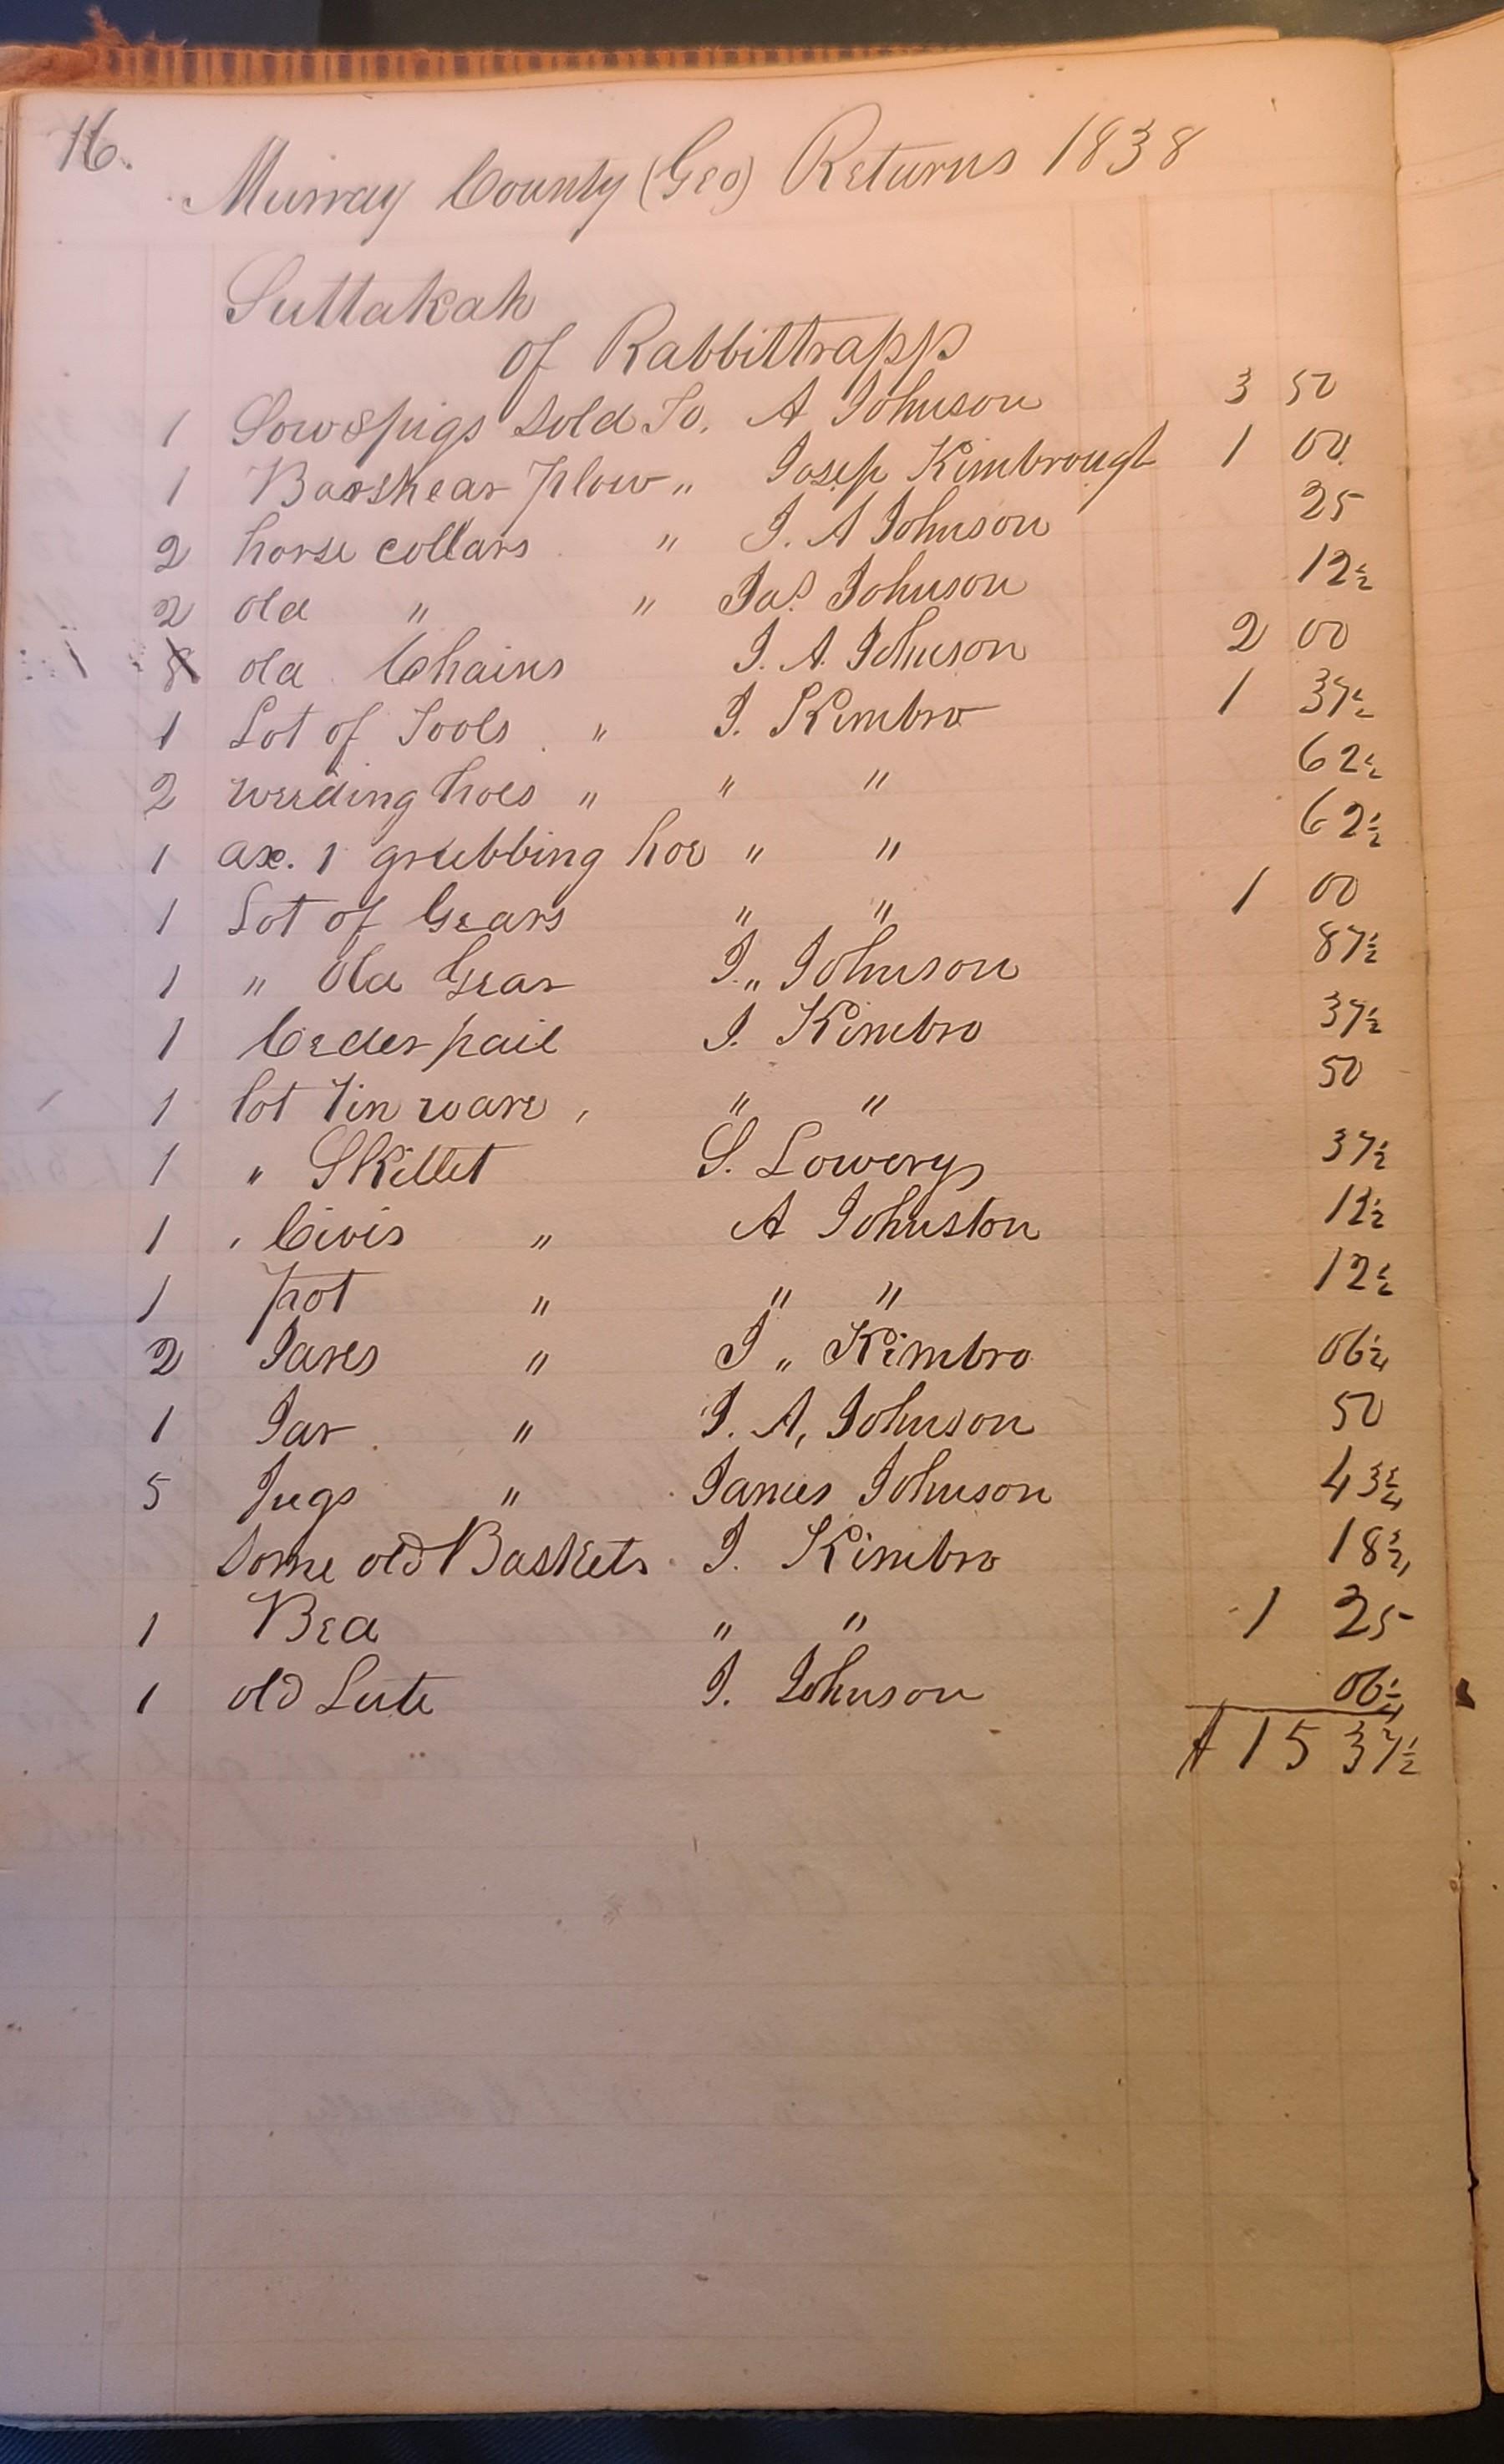 16.
Murray County (Geo) Returns 1838
Suttakah
of Rabbittrapp
1 Sow & pigs Sold To, A Johnson 3 50
1 Barshear plow " Josep Kimbrough 1 00
2 horse collars " J. A Johnson 25
2 old " " Jas Johnson 12½
old Chains J. A. Johnson 2 00
1 Lot of Tools " J. Kimbro 1 37½
2 weeding hoes " " " 62½
1 ax. 1 grubbing hoe " " 62½
1 Lot of Gears " " 1 00
1 " Old Gear J. " Johnson 87½
1 Ceder pail J. Kimbro 37½
1 lot Tin ware , " " 50
1 " Skillet S. Lowery 37½
1 , Civis " A Johnston 12½
1 pot " " " 12½
2 Jares " J " Kimbro 06¼
1 Jar " J. A, Johnson 50
5 Jugs " James Johnson 43¾
Some old Baskets J. Kimbro 18¾
1 Bed " " 1 25
1 old J. Johnson 06¼
$15 37½